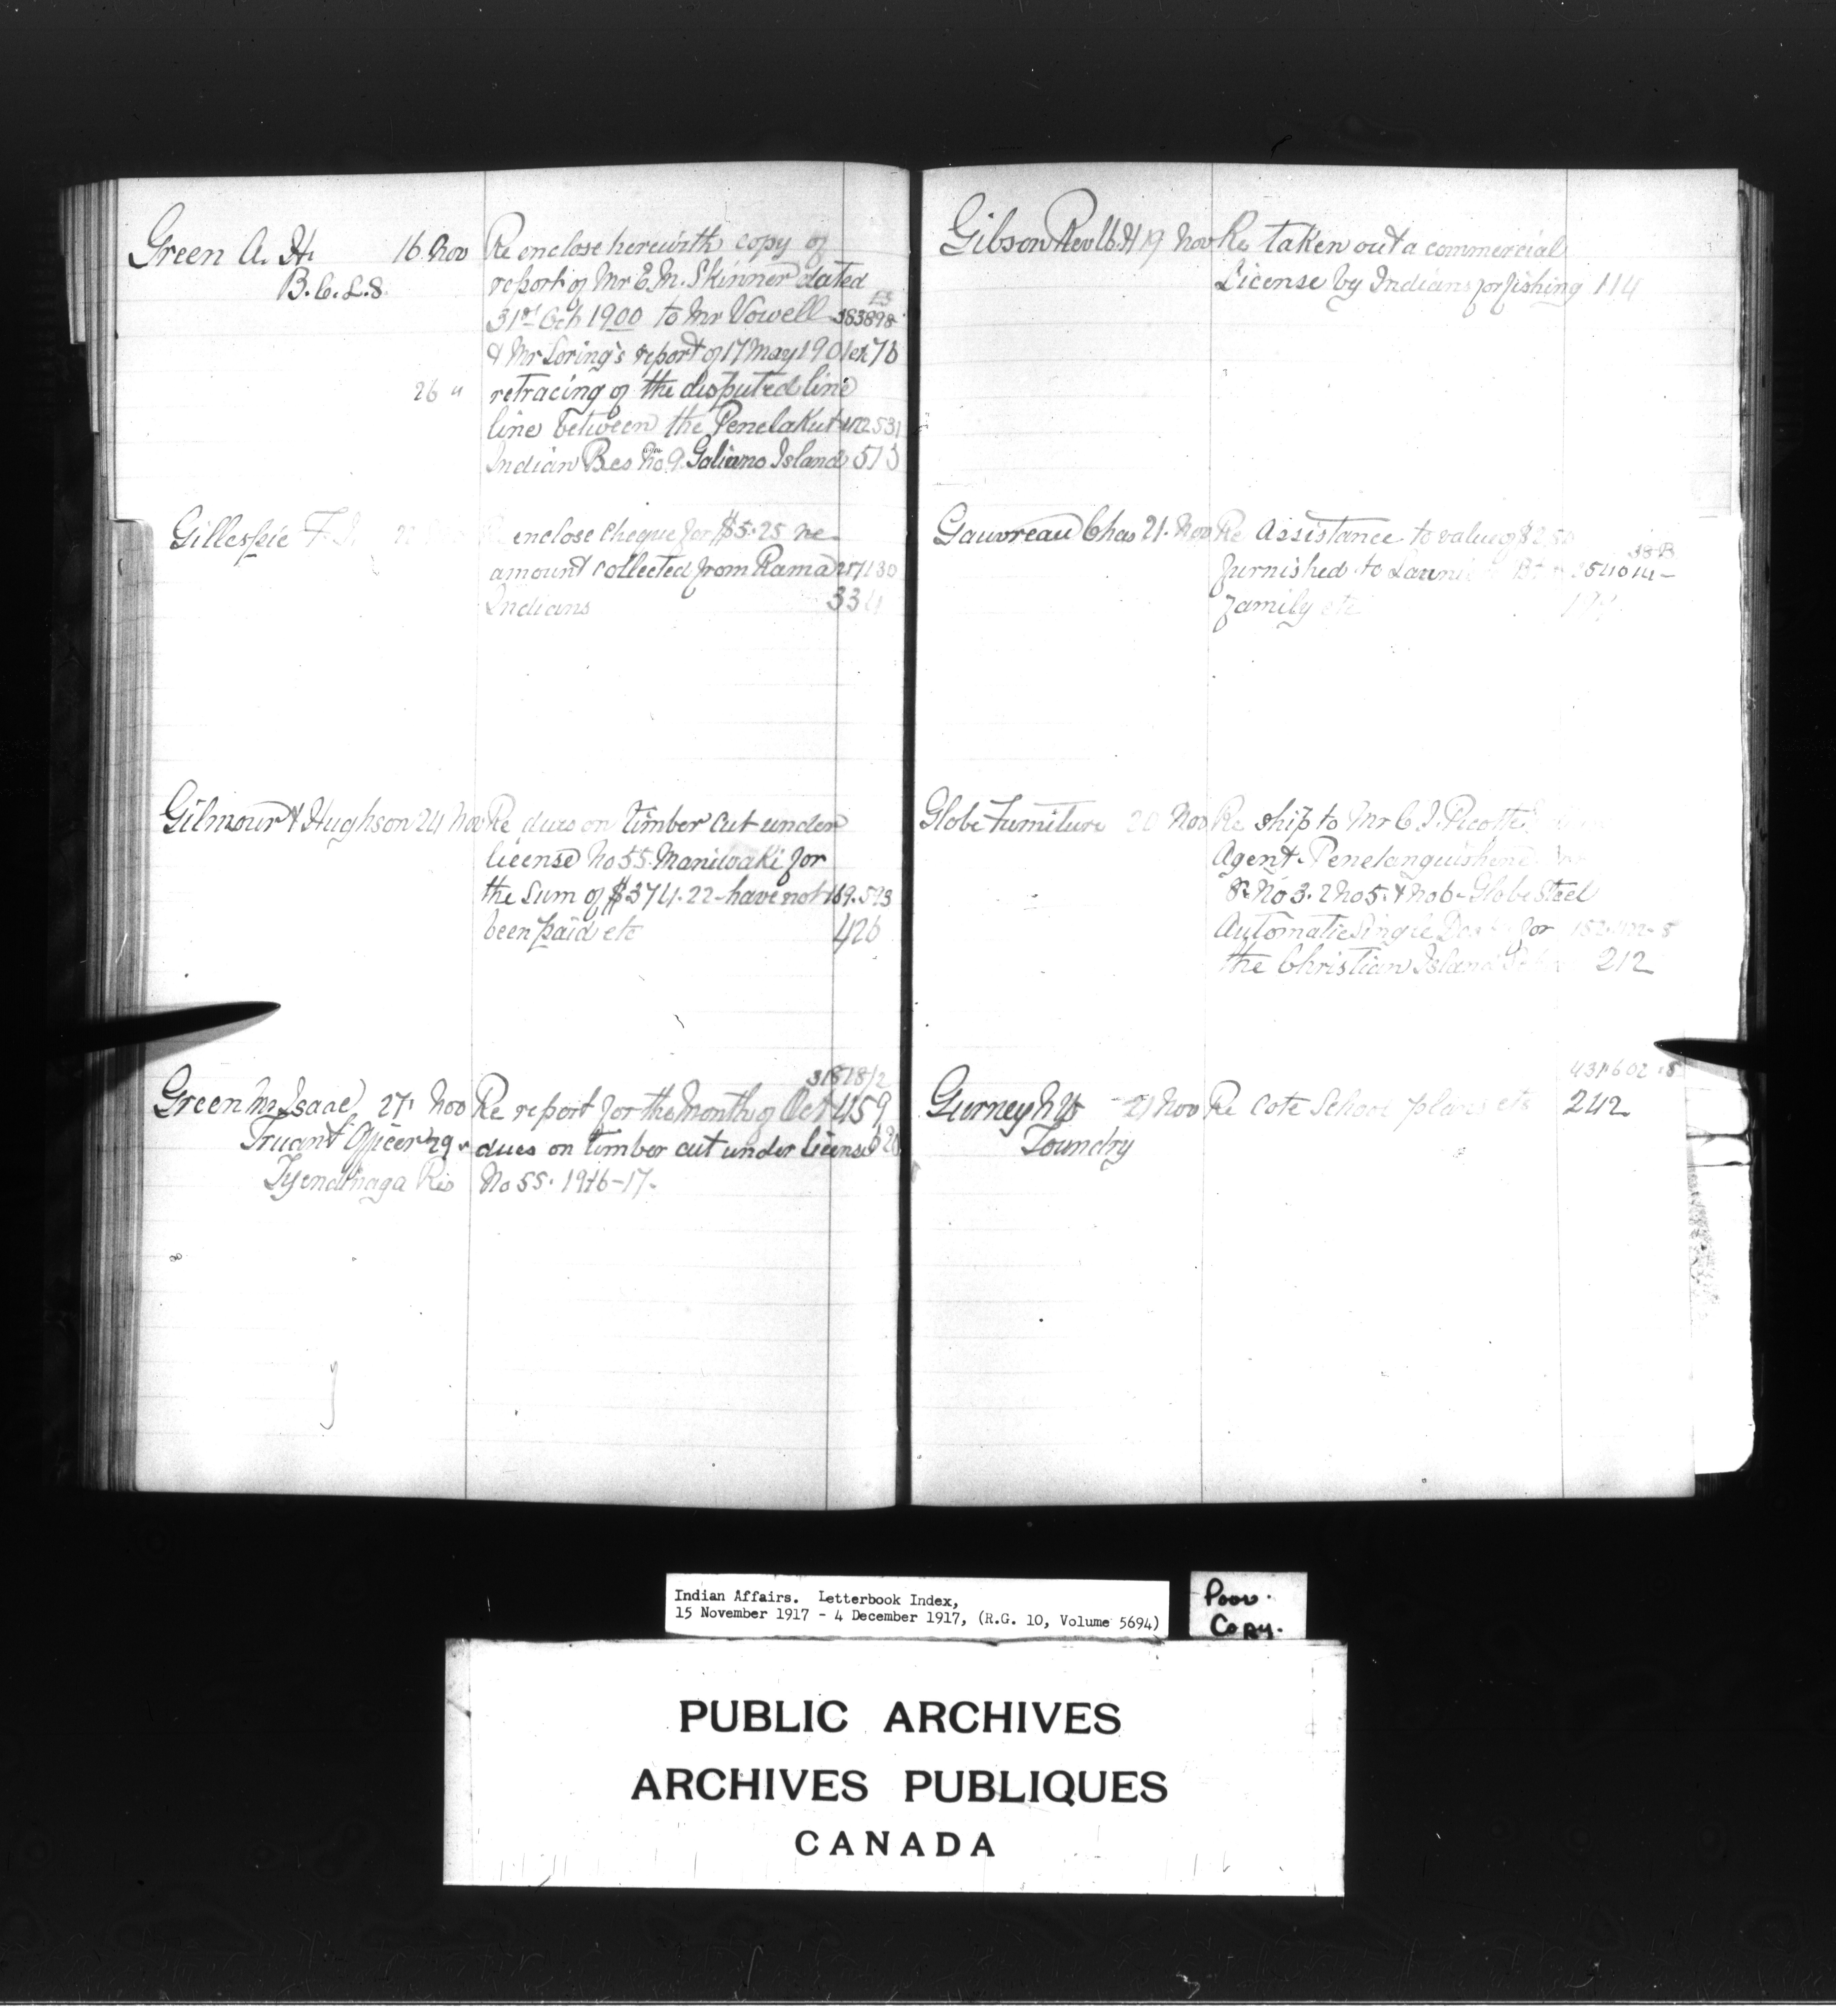 Green A. H. 16 Nov Re enclose herewith copy of
B.C.L.S. report of Mr E. M. Skinner dated
31st Oct 1900 to Mr Vowell 383898
& Mr Loring's report of 17 May 1901 etc 76
26 " retracing of the disputed line
line between the Penelakut
Indian Res No 9. Galiano Island 513
Gillespie enclose cheque for $5.25 re
amount collected from Rama
Indians 334
Gilmour & Hughson 24 Nov Re dues on timber cut under
license No 55. Maniwaki for
the sum of $374.22 - have not
been paid etc 426
318181/2
Green Mr Isaac 27 Nov Re report for the Month of Oct 459
Truant Officer 29 " dues on timber cut under license
Tyendinaga Res No 55. 1916-17.
Gibson Rev 19 Nov Re taken out a commercial
License by Indians for fishing 114
Gauvreau Chas 21. Nov Re Assistance to value of
furnished to
family etc
Globe Furniture 20 Nov Re ship to Mr C. J. Picotte
Agent. Penetanguishene
8 No 3. 2 No 5. & No 6 - Globe Steel
Automatic Single for
the Christian Island 212
Gurney 21 Nov Re Cote School etc 242
Foundry
Indian Affairs. Letterbook Index,
15 November 1917 - 4 December 1917, (R.G. 10, Volume 5694)
Poor.
Copy.
PUBLIC ARCHIVES
ARCHIVES PUBLIQUES
CANADA